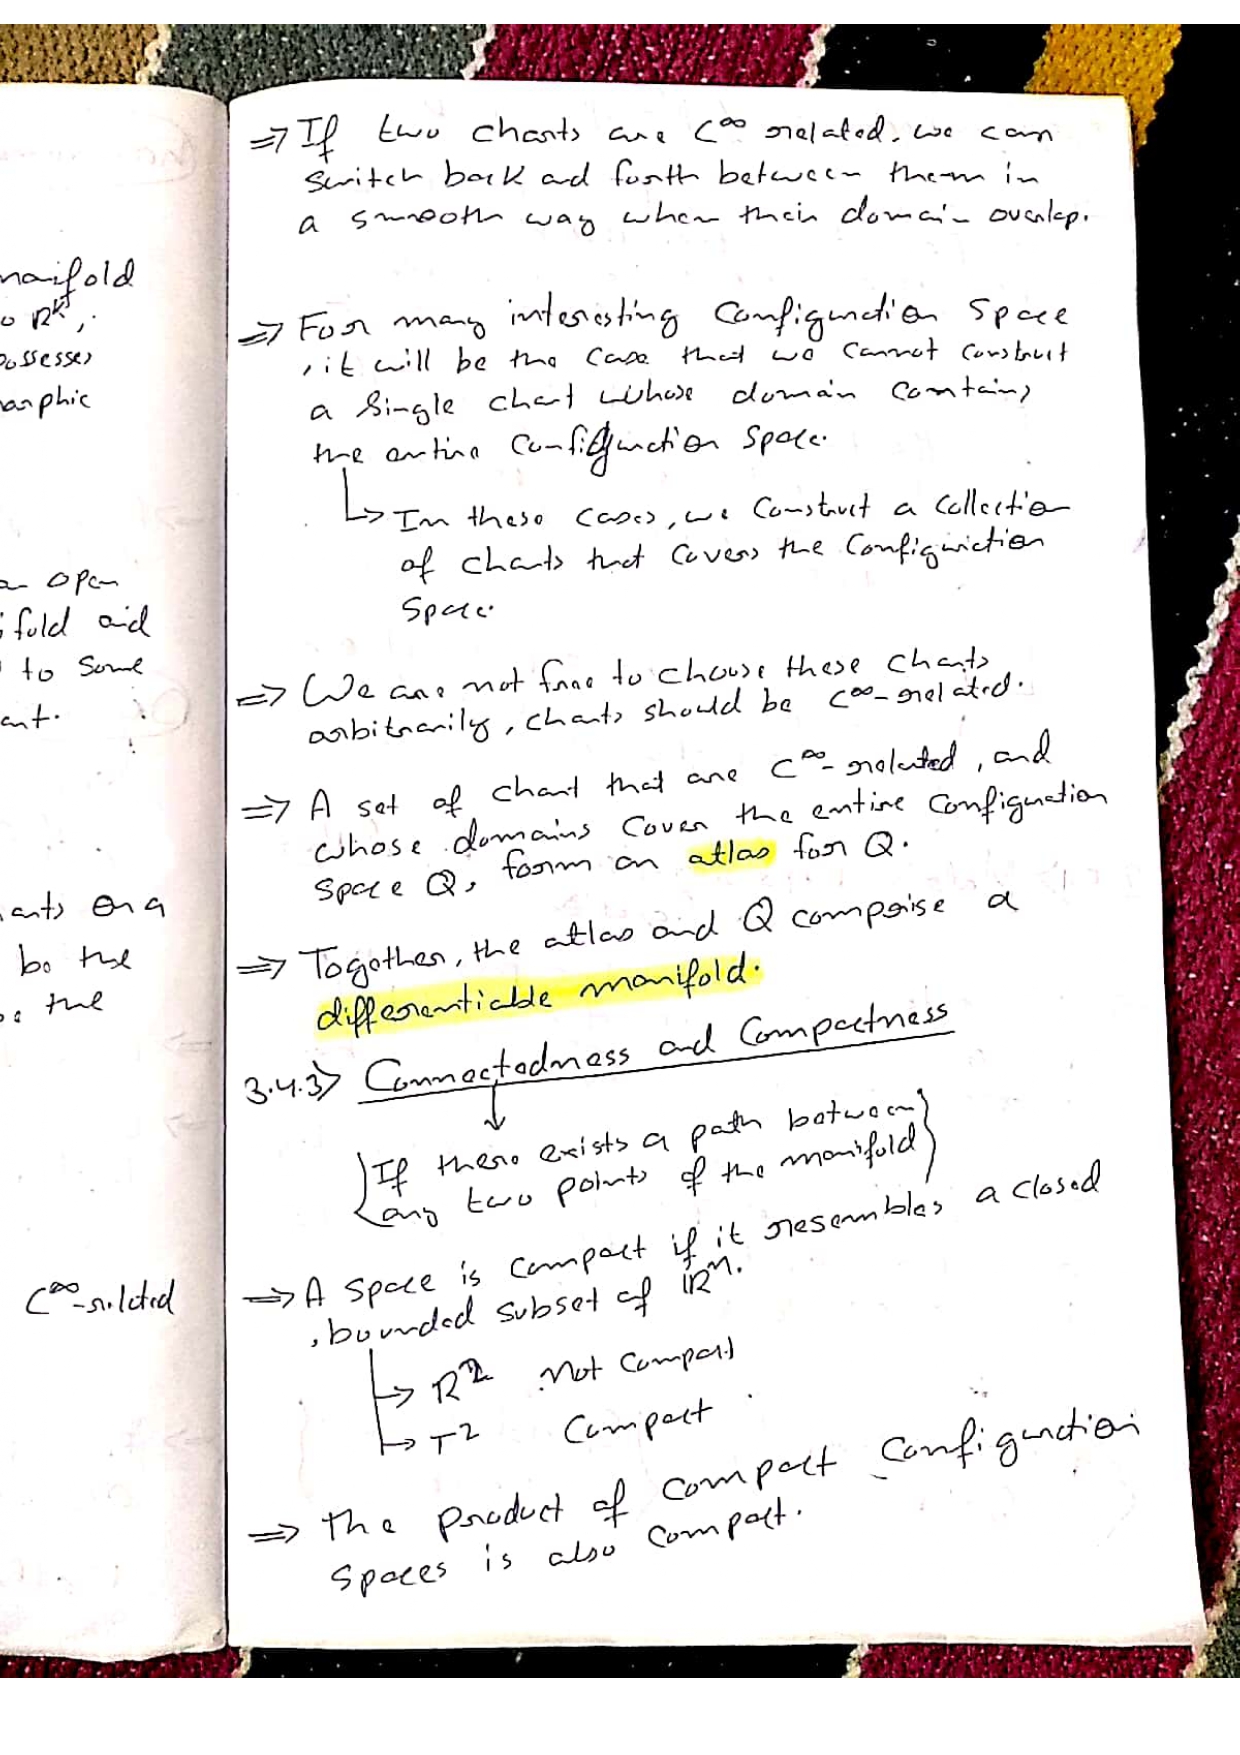 manifold
to R^k,
possesses
morphic
an open
ifold and
to some
ant.
arts on a
be the
the
C^∞-related
⇒ If two charts are C^∞ related, we can
switch back and forth between them in
a smooth way when their domain overlap.
⇒ For many interesting Configuration Space
, it will be the case that we cannot construct
a single chart whose domain contains
the entire Configuration Space.
↳ In these cases, we construct a collection
of charts that covers the configuration
Space.
⇒ We are not free to choose these charts
arbitrarily, charts should be C^∞-related.
⇒ A set of chart that are C^∞-related, and
whose domains cover the entire configuration
space Q, form an atlas for Q.
⇒ Together, the atlas and Q comprise a
differentiable manifold.
3.4.3> Connectedness and Compactness
↓
{If there exists a path between
any two points of the manifold}
⇒ A space is compact if it resembles a closed
, bounded subset of R^n.
→ R^2 Not Compact
→ T^2 Compact
⇒ The product of compact configuration
spaces is also compact.